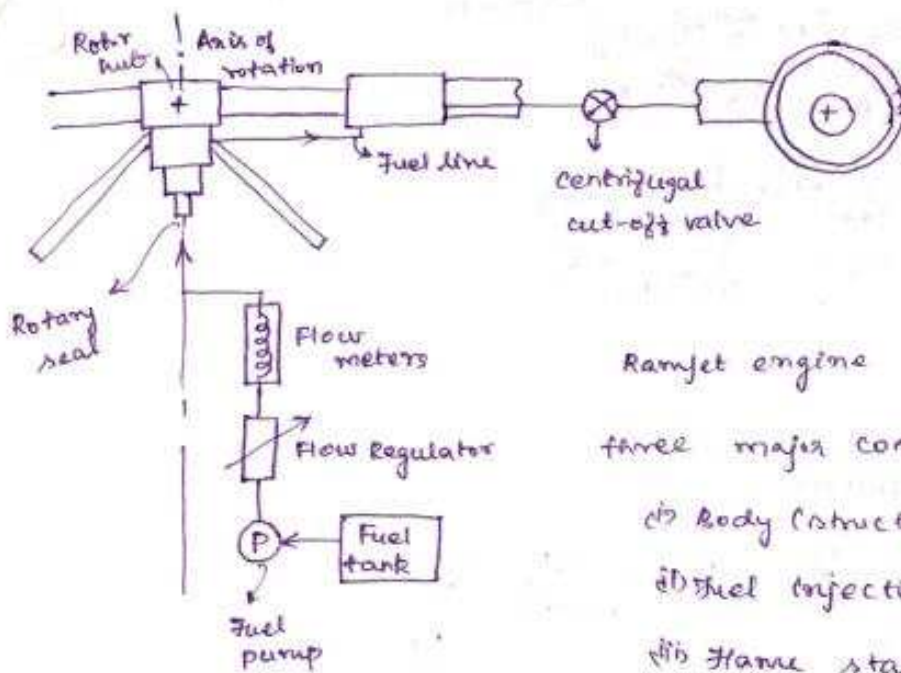 Rotor
hub
Axis of
rotation
Fuel line
Centrifugal
cut-off valve
Rotary
seal
Flow
meters
Flow Regulator
P
Fuel
tank
Fuel
pump
Ramjet engine
three major con
(i) Body (struct
(ii) Fuel injecti
(iii) Flame sta